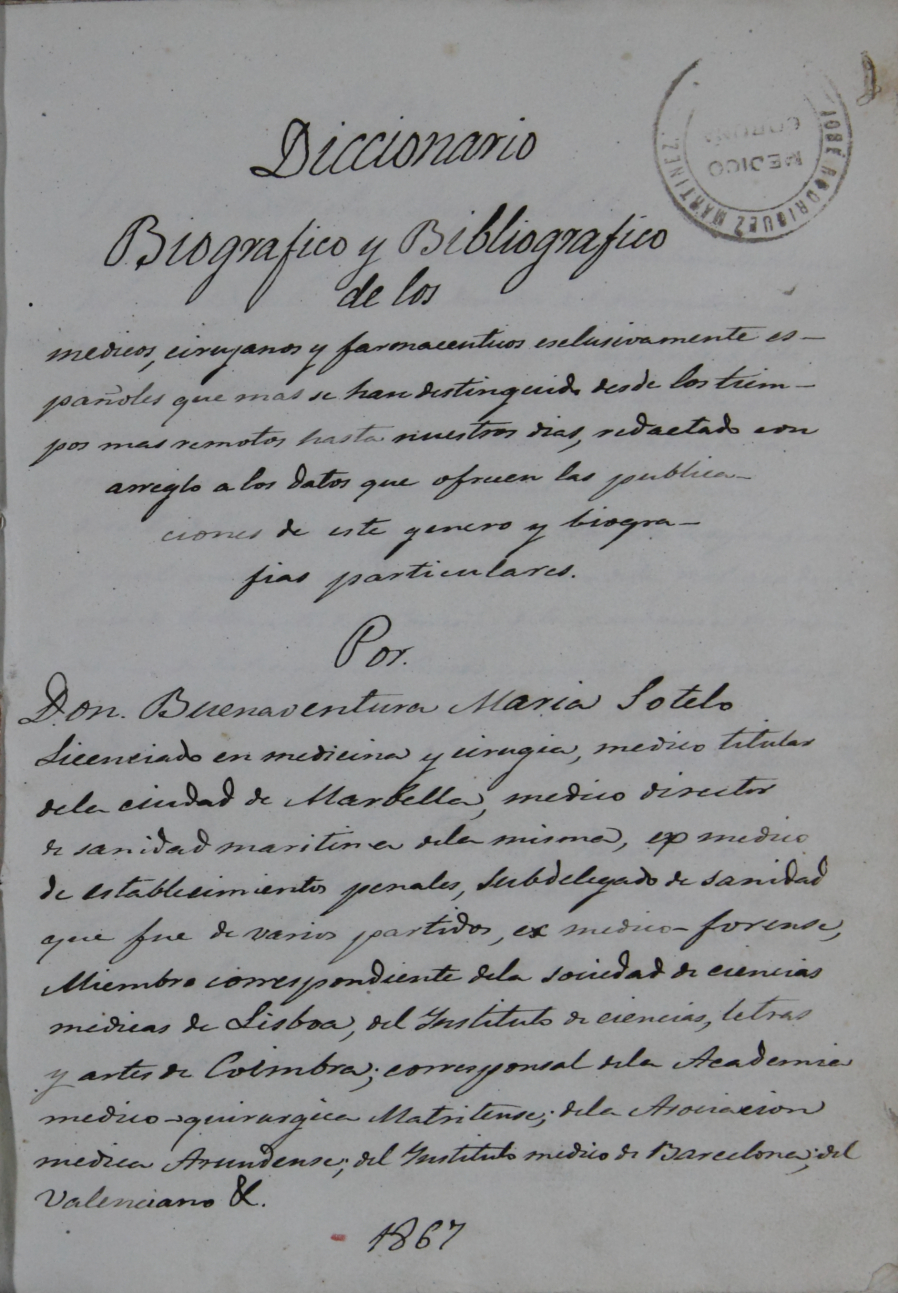 Diccionario
Biografico y Bibliografico
de los
medicos, cirujanos y farmaceuticos esclusivamente es-
pañoles que mas se han distinguido desde los tiem-
pos mas remotos hasta nuestros dias, redactado con
arreglo a los datos que ofrecen las publica-
ciones de este genero y biogra-
fias particulares.
Por.
Don. Buenaventura Maria Sotelo
Licenciado en medicina y cirugia, medico titular
dela ciudad de Marbella, medico director
de sanidad maritima dela misma, ex medico
de establecimientos penales, subdelegado de sanidad
que fue de varios partidos, ex medico-forense,
Miembro correspondiente dela sociedad de ciencias
medicas de Lisboa, del Instituto de ciencias, letras
y artes de Coimbra; corresponsal dela Academia
medico-quirurgica Matritense; dela Asociacion
medica Arundense; del Instituto medico de Barcelona; del
Valenciano &.
1867
JOSÉ RODRIGUEZ MARTINEZ
MEDICO
CORUÑA